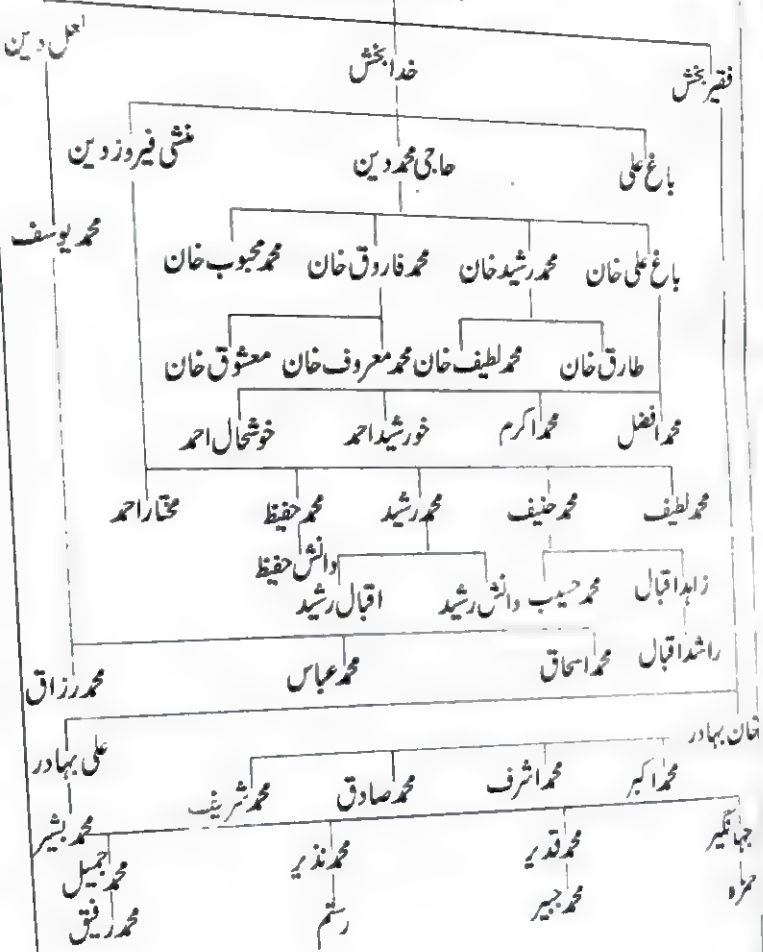 فقیر بخش خدا بخش لعل دین
باغ علی حاجی محمد دین منشی فیروز دین
محمد یوسف
باغ علی خان محمد رشید خان محمد فاروق خان محمد محبوب خان
طارق خان محمد لطیف خان محمد معروف خان معشوق خان
محمد افضل محمد اکرم خورشید احمد خوشحال احمد
محمد لطیف محمد حنیف محمد رشید محمد حفیظ مختار احمد
زاہد اقبال محمد حسیب دانش رشید اقبال رشید دانش حفیظ
راشد اقبال محمد اسحاق محمد عباس محمد رزاق
خان بہادر علی بہادر
محمد اکبر محمد اشرف محمد صادق محمد شریف
جہانگیر محمد قدیر محمد نذیر محمد جمیل محمد بشیر
حمزہ محمد جبیر رستم محمد رفیق